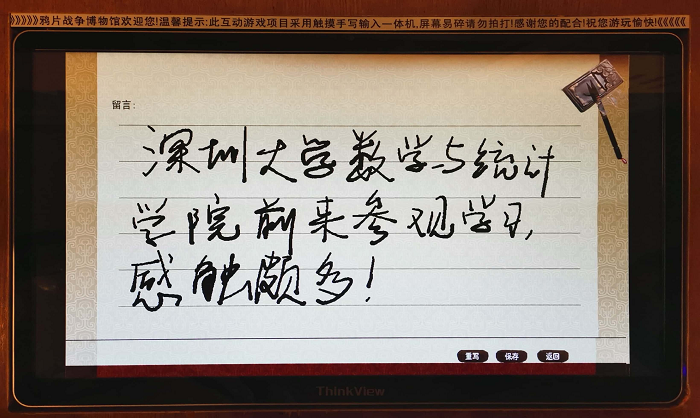 》》》》》鸦片战争博物馆欢迎您!温馨提示:此互动游戏项目采用触摸手写输入一体机,屏幕易碎请勿拍打!感谢您的配合!祝您游玩愉快!《《《《《
留言:
深圳大学数学与统计
学院前来参观学习,
感触颇多!
重写 保存 返回
ThinkView